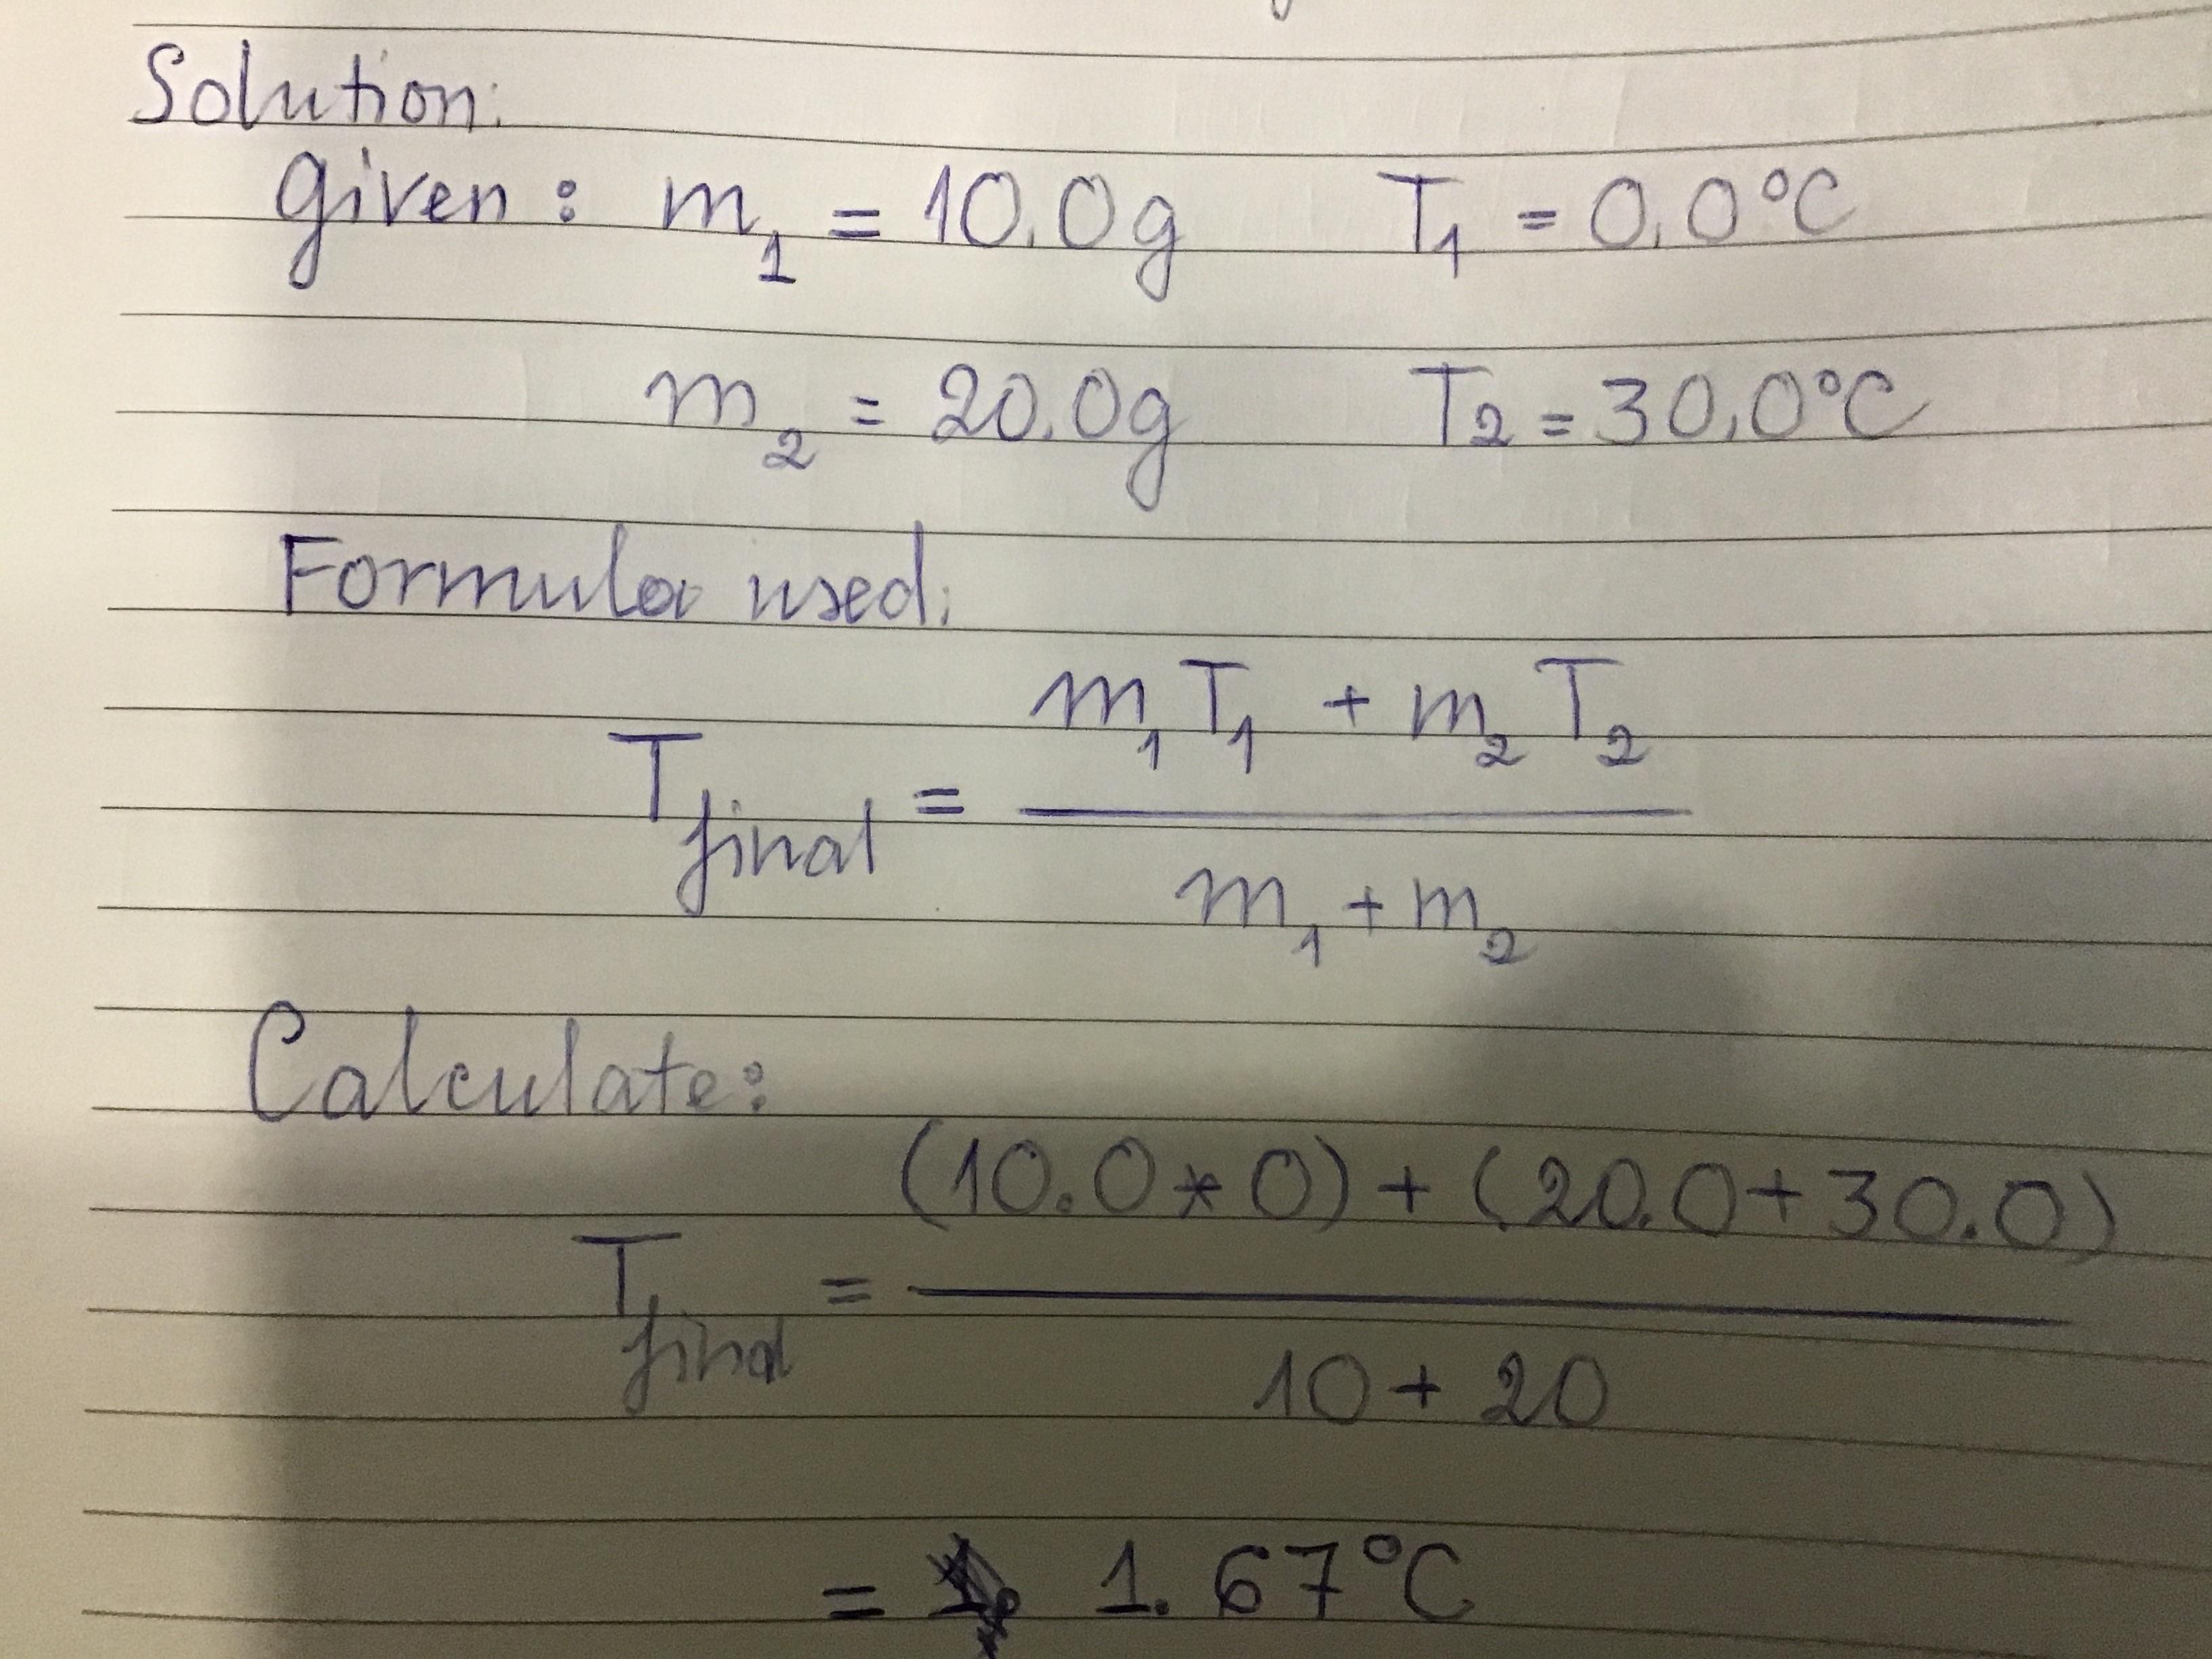 Solution:
given : m₁ = 10.0g T₁ = 0.0°C
m₂ = 20.0g T₂ = 30.0°C
Formula used:
T_final = (m₁T₁ + m₂T₂) / (m₁ + m₂)
Calculate:
T_final = ((10.0 * 0) + (20.0 + 30.0)) / (10 + 20)
= 1.67°C